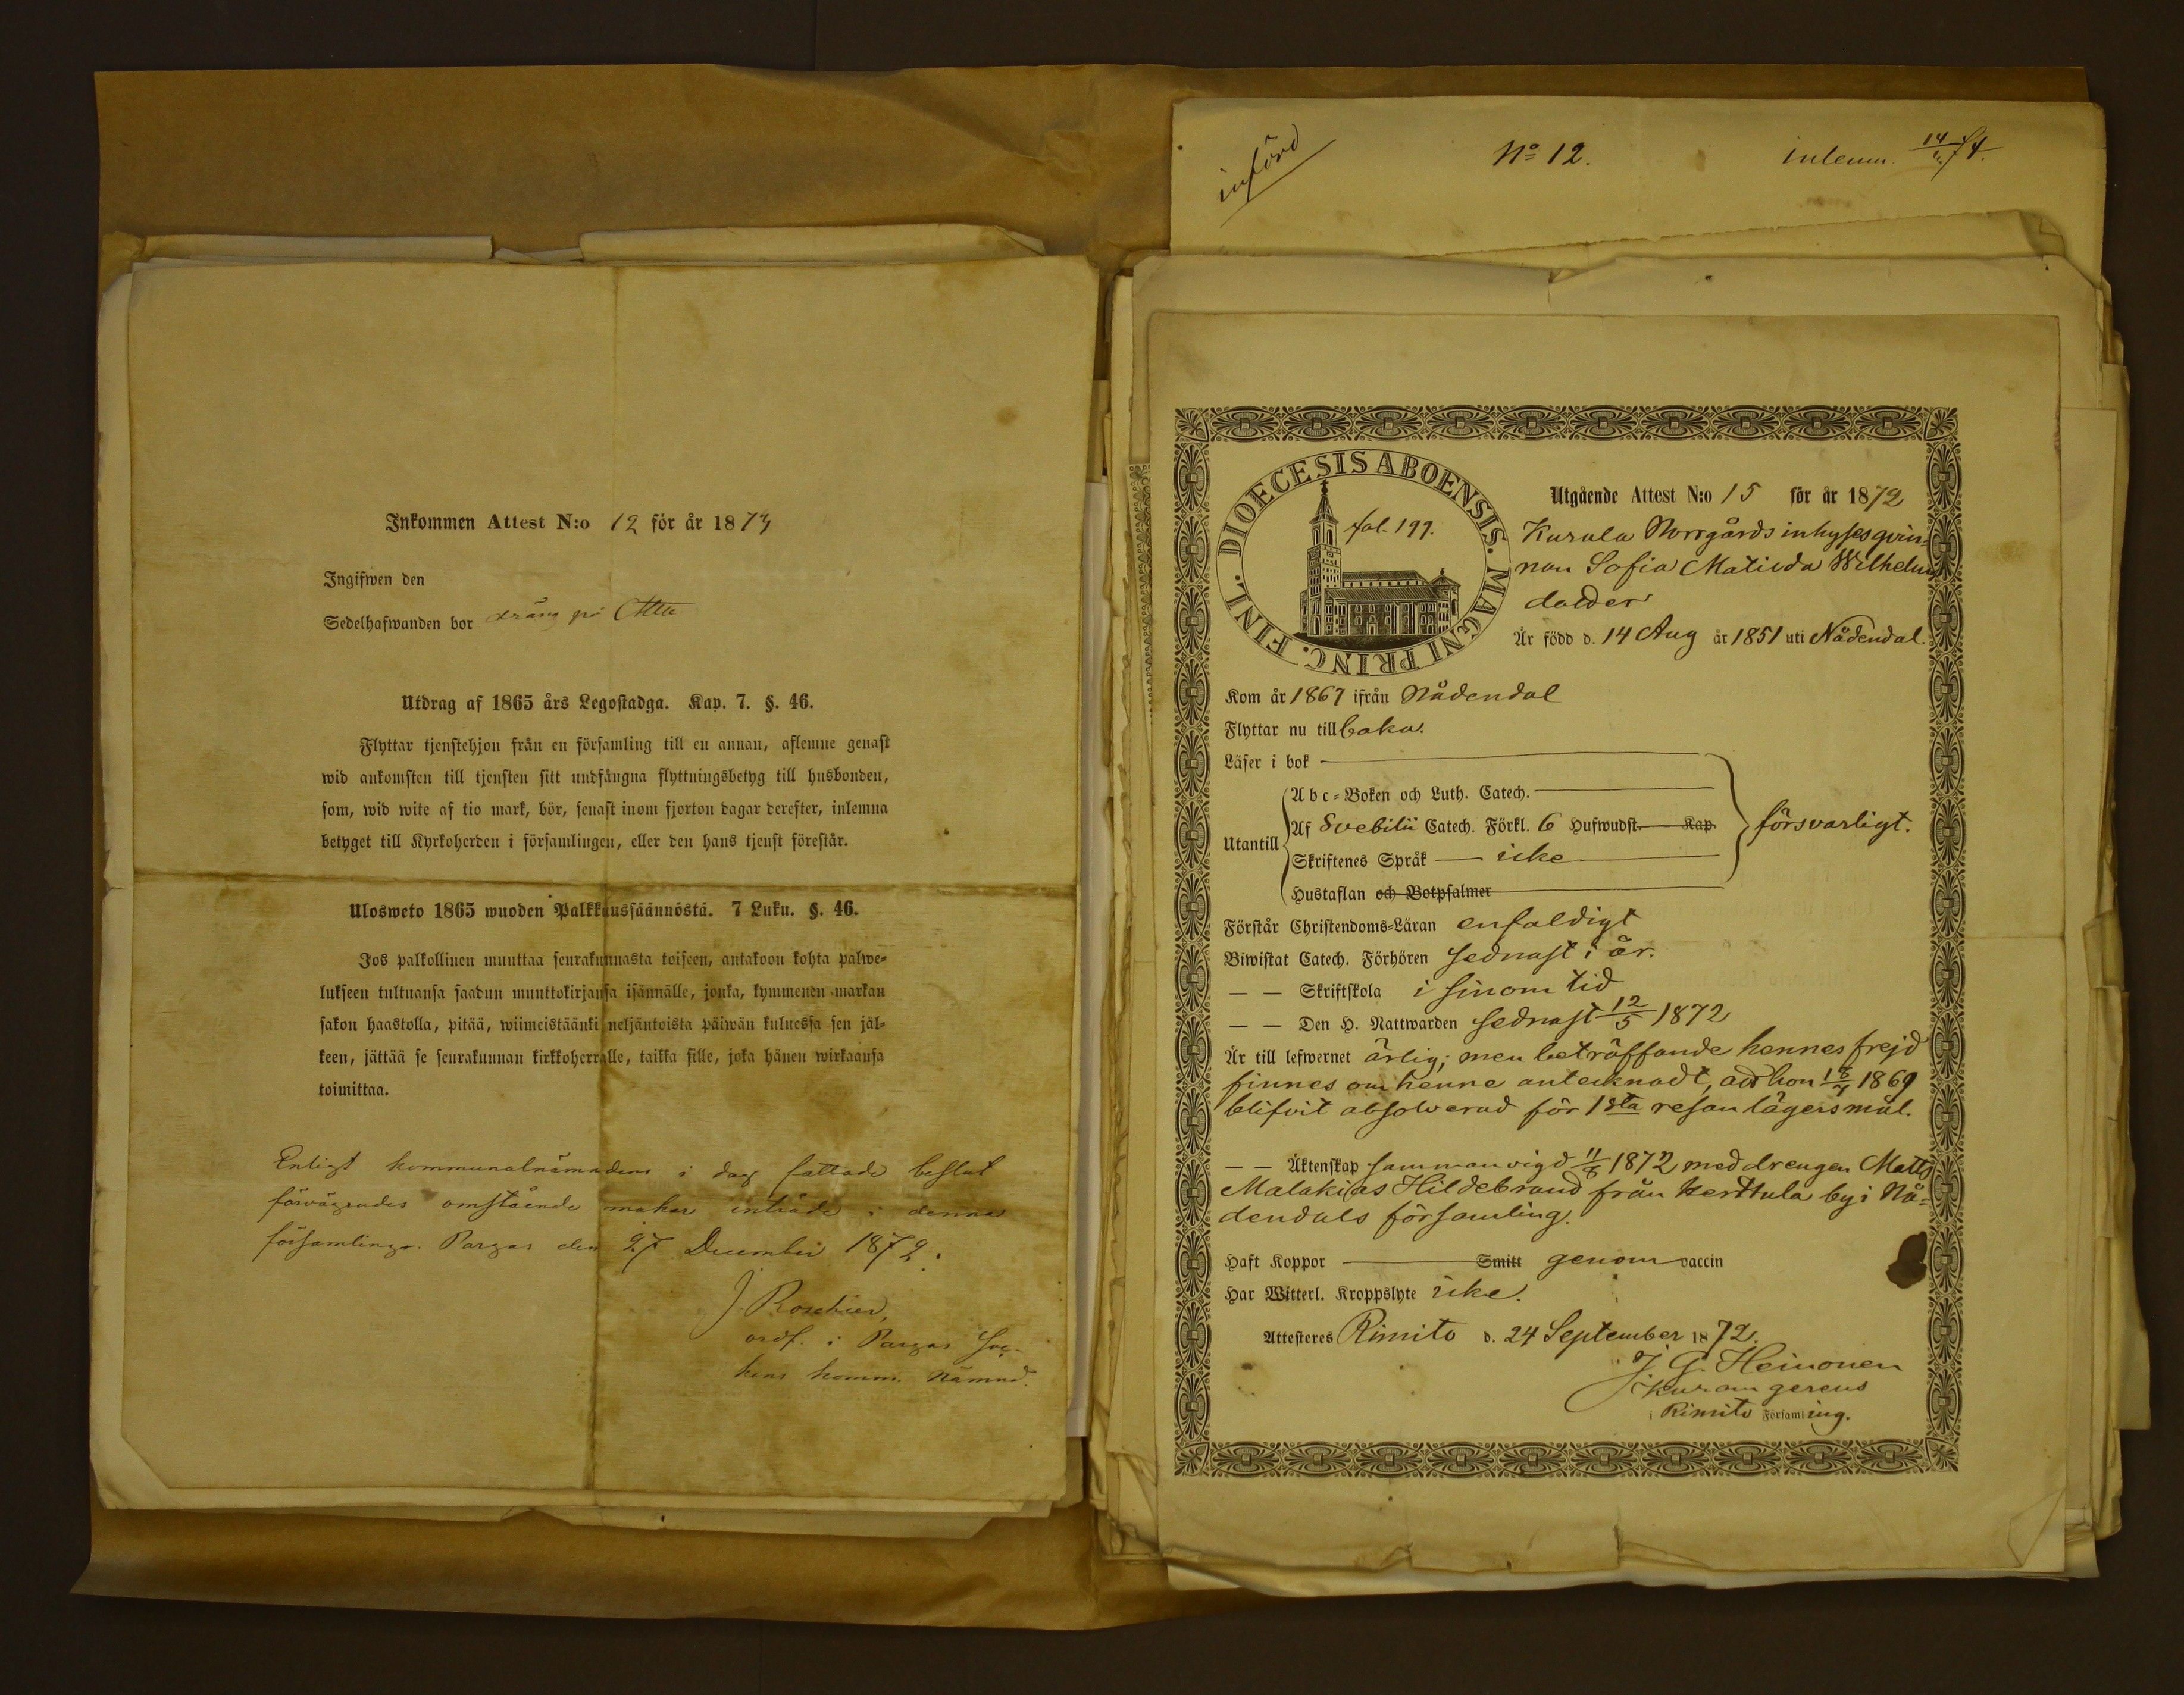 Inkommen Attest N:o 12 för år 1874
Ingifwen den
Sedelhafwanden bor dräng på Attu
Utdrag af 1865 års Legostadga. Kap. 7. §. 46.
Flyttar tjenstehjon från en församling till en annan, aflemne genast
wid ankomsten till tjensten sitt undfångna flyttningsbetyg till husbonden,
som, wid wite af tio mark, bör, senast inom fjorton dagar derefter, inlemna
betyget till Kyrkoherden i församlingen, eller den hans tjenst förestår.
Ulosweto 1865 wuoden Palkkaussäännöstä. 7 Luku. §. 46.
Jos palkollinen muuttaa seurakunnasta toiseen, antakoon kohta palwe-
lukseen tultuansa saadun muuttokirjansa isännälle, jonka, kymmenen markan
sakon haastolla, pitää, wiimeistäänki neljäntoista päiwän kuluessa sen jäl-
keen, jättää se seurakunnan kirkkoherralle, taikka sille, joka hänen wirkaansa
toimittaa.
Enligt kommunalnämndens i dag fattade beslut
förvägrades omstående makar inträde i denna
församling. Pargas den 27 December 1872.
J. Roschier,
ordf. i Pargas Soc-
kens komm. Nämnd.
införd
No 12.
inlemn. 14/ 74.
DIOECESIS ABOENSIS. MAGNI PRINC. FINL.
fol. 199.
Utgående Attest N:o 15 för år 1872
Kurala Norrgårds inhysesqvin-
nan Sofia Matilda Wilhelms
dotter
Är född d. 14 Aug år 1851 uti Nådendal.
Kom år 1867 ifrån Nådendal
Flyttar nu till baka.
Läser i bok
Utantill
Abc-Boken och Luth. Catech.
Af Svebilii Catech. Förkl. 6 Hufwudst. Kap.
försvarligt.
Skriftenes Språk icke
Hustaflan och Botpsalmer
Förstår Christendoms-Läran enfaldigt
Biwistat Catech. Förhören sednast i år.
— — Skriftskola i sinom tid
— — Den H. Nattwarden sednast 12/5 1872
Är till lefwernet ärlig; men beträffande hennes frejd
finnes om henne antecknadt, att hon 18/7 1869
blifvit absolverad för 1sta resan lägersmål.
— — Äktenskap sammanvigd 11/8 1872 med drengen Matts
Malakias Hildebrand från Kerttula by i Nå-
dendals församling.
Haft Koppor Smitt genom vaccin
Har Witterl. Kroppslyte icke.
Attesteres Rimito d. 24 September 1872.
J. G. Heinonen
kuram gerens
i Rimito Församling.